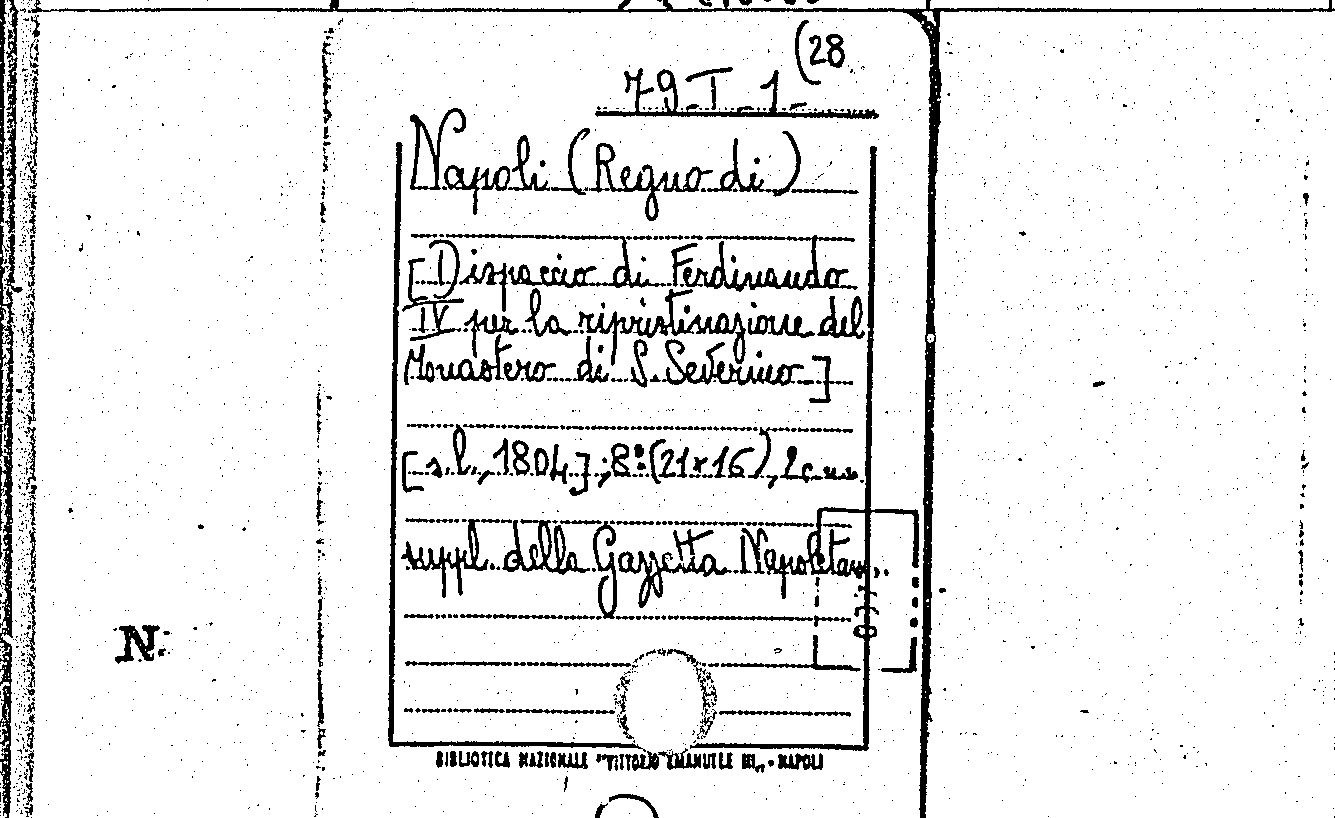 79-I-1-(28
Napoli (Regno di)
[Dispaccio di Ferdinando
IV per la ripristinazione del
Monastero di S. Severino]
[s.l., 1804]; 8º (21x16), 2 c.nn.
suppl. della Gazzetta Napoletan..
N.
BIBLIOTECA NAZIONALE "VITTORIO EMANUELE III„ - NAPOLI